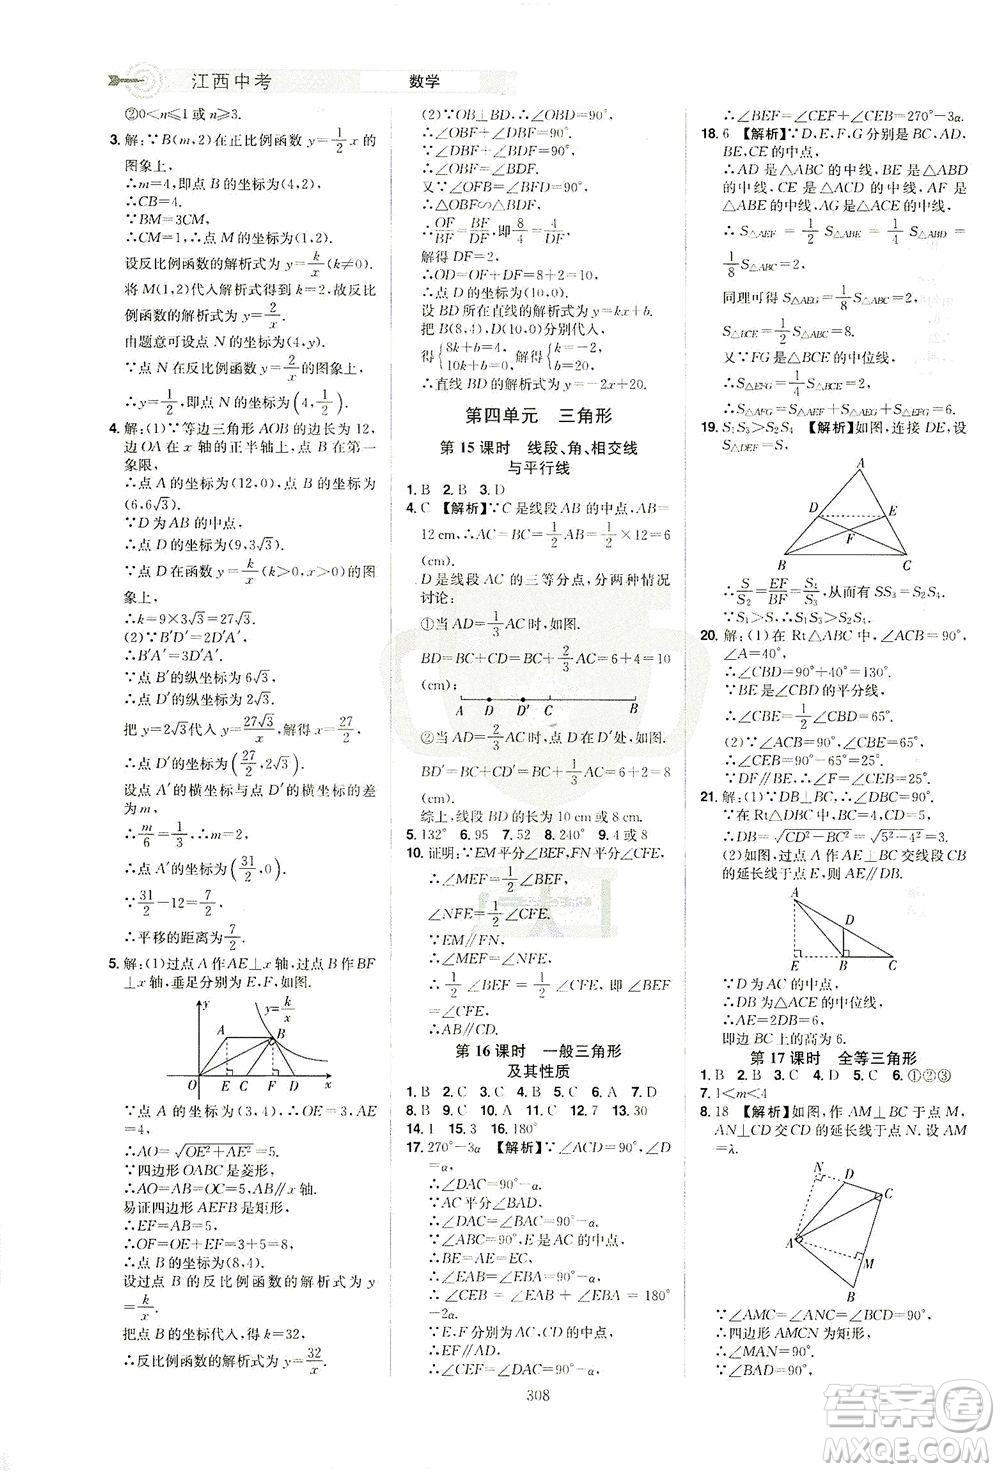 江西中考
数学
②0<n≤1或n≥3.
3. 解:∵B(m,2)在正比例函数y=1/2x的
图象上,
∴m=4,即点B的坐标为(4,2),
∴CB=4.
∵BM=3CM,
∴CM=1,∴点M的坐标为(1,2).
设反比例函数的解析式为y=k/x(k≠0).
将M(1,2)代入解析式得到k=2,故反比
例函数的解析式为y=2/x.
由题意可设点N的坐标为(4,y),
∵点N在反比例函数y=2/x的图象上,
∴y=1/2,即点N的坐标为(4,1/2).
4. 解:(1)∵等边三角形AOB的边长为12,
边OA在x轴的正半轴上,点B在第一
象限,
∴点A的坐标为(12,0),点B的坐标为
(6,6√3).
∵D为AB的中点,
∴点D的坐标为(9,3√3).
∵点D在函数y=k/x(k>0,x>0)的图
象上,
∴k=9×3√3=27√3.
(2)∵B′D′=D′A′,
∴点D′的纵坐标为3√3.
∵点B′的纵坐标为6√3,
把y=2√3代入y=27√3/x,得x=27/2,
∴点C的坐标为(27/2,2√3).
设点A′的横坐标与点D′的横坐标的差
为m,
∴m/6=1/3,
∴点A′的坐标为(31/2,0).
∵31/2-12=7/2,
∴平移的距离为7/2.
5. 解:(1)过点A作AE⊥x轴,过点B作BF
⊥x轴,垂足分别为E,F,如图.
y y=k/x
A B
O E C F D x
∵点A的坐标为(3,4),∴OE=3,AE
=4,
∴AO=√(OE²+AE²)=5.
∵四边形OABC是菱形,
∴AO=AB=OC=5,AB∥x轴.
易证四边形AEFB是矩形,
∴EF=AB=5,
∴OF=OE+EF=3+5=8,
∴点B的坐标为(8,4).
设过点B的反比例函数的解析式为y=
k/x,
把点B的坐标代入,得k=32,
∴反比例函数的解析式为y=32/x.
(2)∵OB⊥BD,∴∠OBD=90°,
∴∠OBF+∠DBF=90°.
∵∠DBF+∠BDF=90°,
∴∠OBF=∠BDF.
又∵∠OFB=∠BFD=90°,
∴△OBF∽△BDF,
∴OF/BF=BF/DF,即8/4=4/DF,
解得DF=2,
∴OD=OF+DF=8+2=10,
∴点D的坐标为(10,0).
设BD所在直线的解析式为y=kx+b.
把B(8,4),D(10,0)分别代入,
得{8k+b=4, 10k+b=0,解得{k=-2, b=20.
∴直线BD的解析式为y=-2x+20.
第四单元 三角形
第15课时 线段、角、相交线
与平行线
1. B 2. B 3. D
4. C 【解析】∵C是线段AB的中点,AB=
12 cm,∴AC=BC=1/2AB=1/2×12=6
(cm).
D是线段AC的三等分点,分两种情况
讨论:
①当AD=1/3AC时,如图.
BD=BC+CD=BC+2/3AC=6+4=10
(cm);
A D D′ C B
②当AD=2/3AC时,点D在D′处,如图.
BD′=BC+CD′=BC+1/3AC=6+2=8
(cm).
综上,线段BD的长为10 cm或8 cm.
5. 132° 6. 95 7. 52 8. 240° 9. 4或6
10. 证明:∵EM平分∠BEF,FN平分∠CFE,
∴∠MEF=1/2∠BEF,
∠NFE=1/2∠CFE.
∵EM∥FN,
∴∠MEF=∠NFE,
∴1/2∠BEF=1/2∠CFE,即∠BEF
=∠CFE,
∴AB∥CD.
第16课时 一般三角形
及其性质
1. B 2. C 3. B 4. B 5. C 6. A 7. D
8. B 9. C 10. C 11. C 12. 7 13. 8
14. 1 15. 3 16. 180°
17. 270°-3α 【解析】∵∠ACD=90°,∠D=
α,
∴∠DAC=90°-α.
∵AC平分∠BAD,
∴∠DAC=∠BAC=90°-α.
∵∠ABC=90°,E是AC的中点,
∴BE=AE=EC,
∴∠EAB=∠EBA=90°-α,
∴∠CEB=∠EAB+∠EBA=180°
-2α.
∵E,F分别为AC,CD的中点,
∴EF∥AD,
∴∠CEF=∠CAD=90°-α,
∴∠BEF=∠CEF+∠CEB=270°-3α.
18. 6 【解析】∵D,E,F,G分别是BC,AD,
BE,CE的中点,
∴AD是△ABC的中线,BE是△ABD的
中线,CE是△ACD的中线,AF是
△ABE的中线,AG是△ACE的中线,
∴S△AEF=1/2S△ABE=1/4S△ABD=
1/8S△ABC=2,
同理可得S△AEG=1/8S△ABC=2,
S△BCE=1/2S△ABC=8.
又∵FG是△BCE的中位线,
∴S△EFG=1/4S△BCE=2,
∴S△AFG=S△AEF+S△AEG+S△EFG=6.
19. S₁S₃>S₂S₄ 【解析】如图,连接DE,设
S△DEF=S,
A
D E
F
B C
∴S/S₂=EF/BF=S₄/S₃,从而有SS₃=S₂S₄.
∵S₁>S,∴S₁S₃>S₂S₄.
20. 解:(1)在Rt△ABC中,∠ACB=90°,
∠A=40°,
∴∠CBD=90°+40°=130°.
∵BE是∠CBD的平分线,
∴∠CBE=1/2∠CBD=65°.
(2)∵∠ACB=90°,∠CBE=65°,
∴∠CEB=90°-65°=25°.
∵DF∥BE,∴∠F=∠CEB=25°.
21. 解:(1)∵DB⊥BC,∴∠DBC=90°,
∴在Rt△DBC中,BC=4,CD=5,
∴DB=√(CD²-BC²)=√(5²-4²)=3.
(2)如图,过点A作AE⊥BC交线段CB
的延长线于点E,所以AE∥DB.
A
D
E B C
∵D为AC的中点,
∴DB为△ACE的中位线,
∴AE=2DB=6,
即边BC上的高为6.
第17课时 全等三角形
1. B 2. B 3. C 4. D 5. C 6. ①②③
7. 1<m<4
8. 18 【解析】如图,作AM⊥BC于点M,
AN⊥CD交CD的延长线于点N,设AM
=λ.
N D
C
A M
B
∵∠AMC=∠ANC=∠BCD=90°,
∴四边形AMCN为矩形,
∴∠MAN=90°.
∵∠BAD=90°,
308
答案圈
MXQE.COM